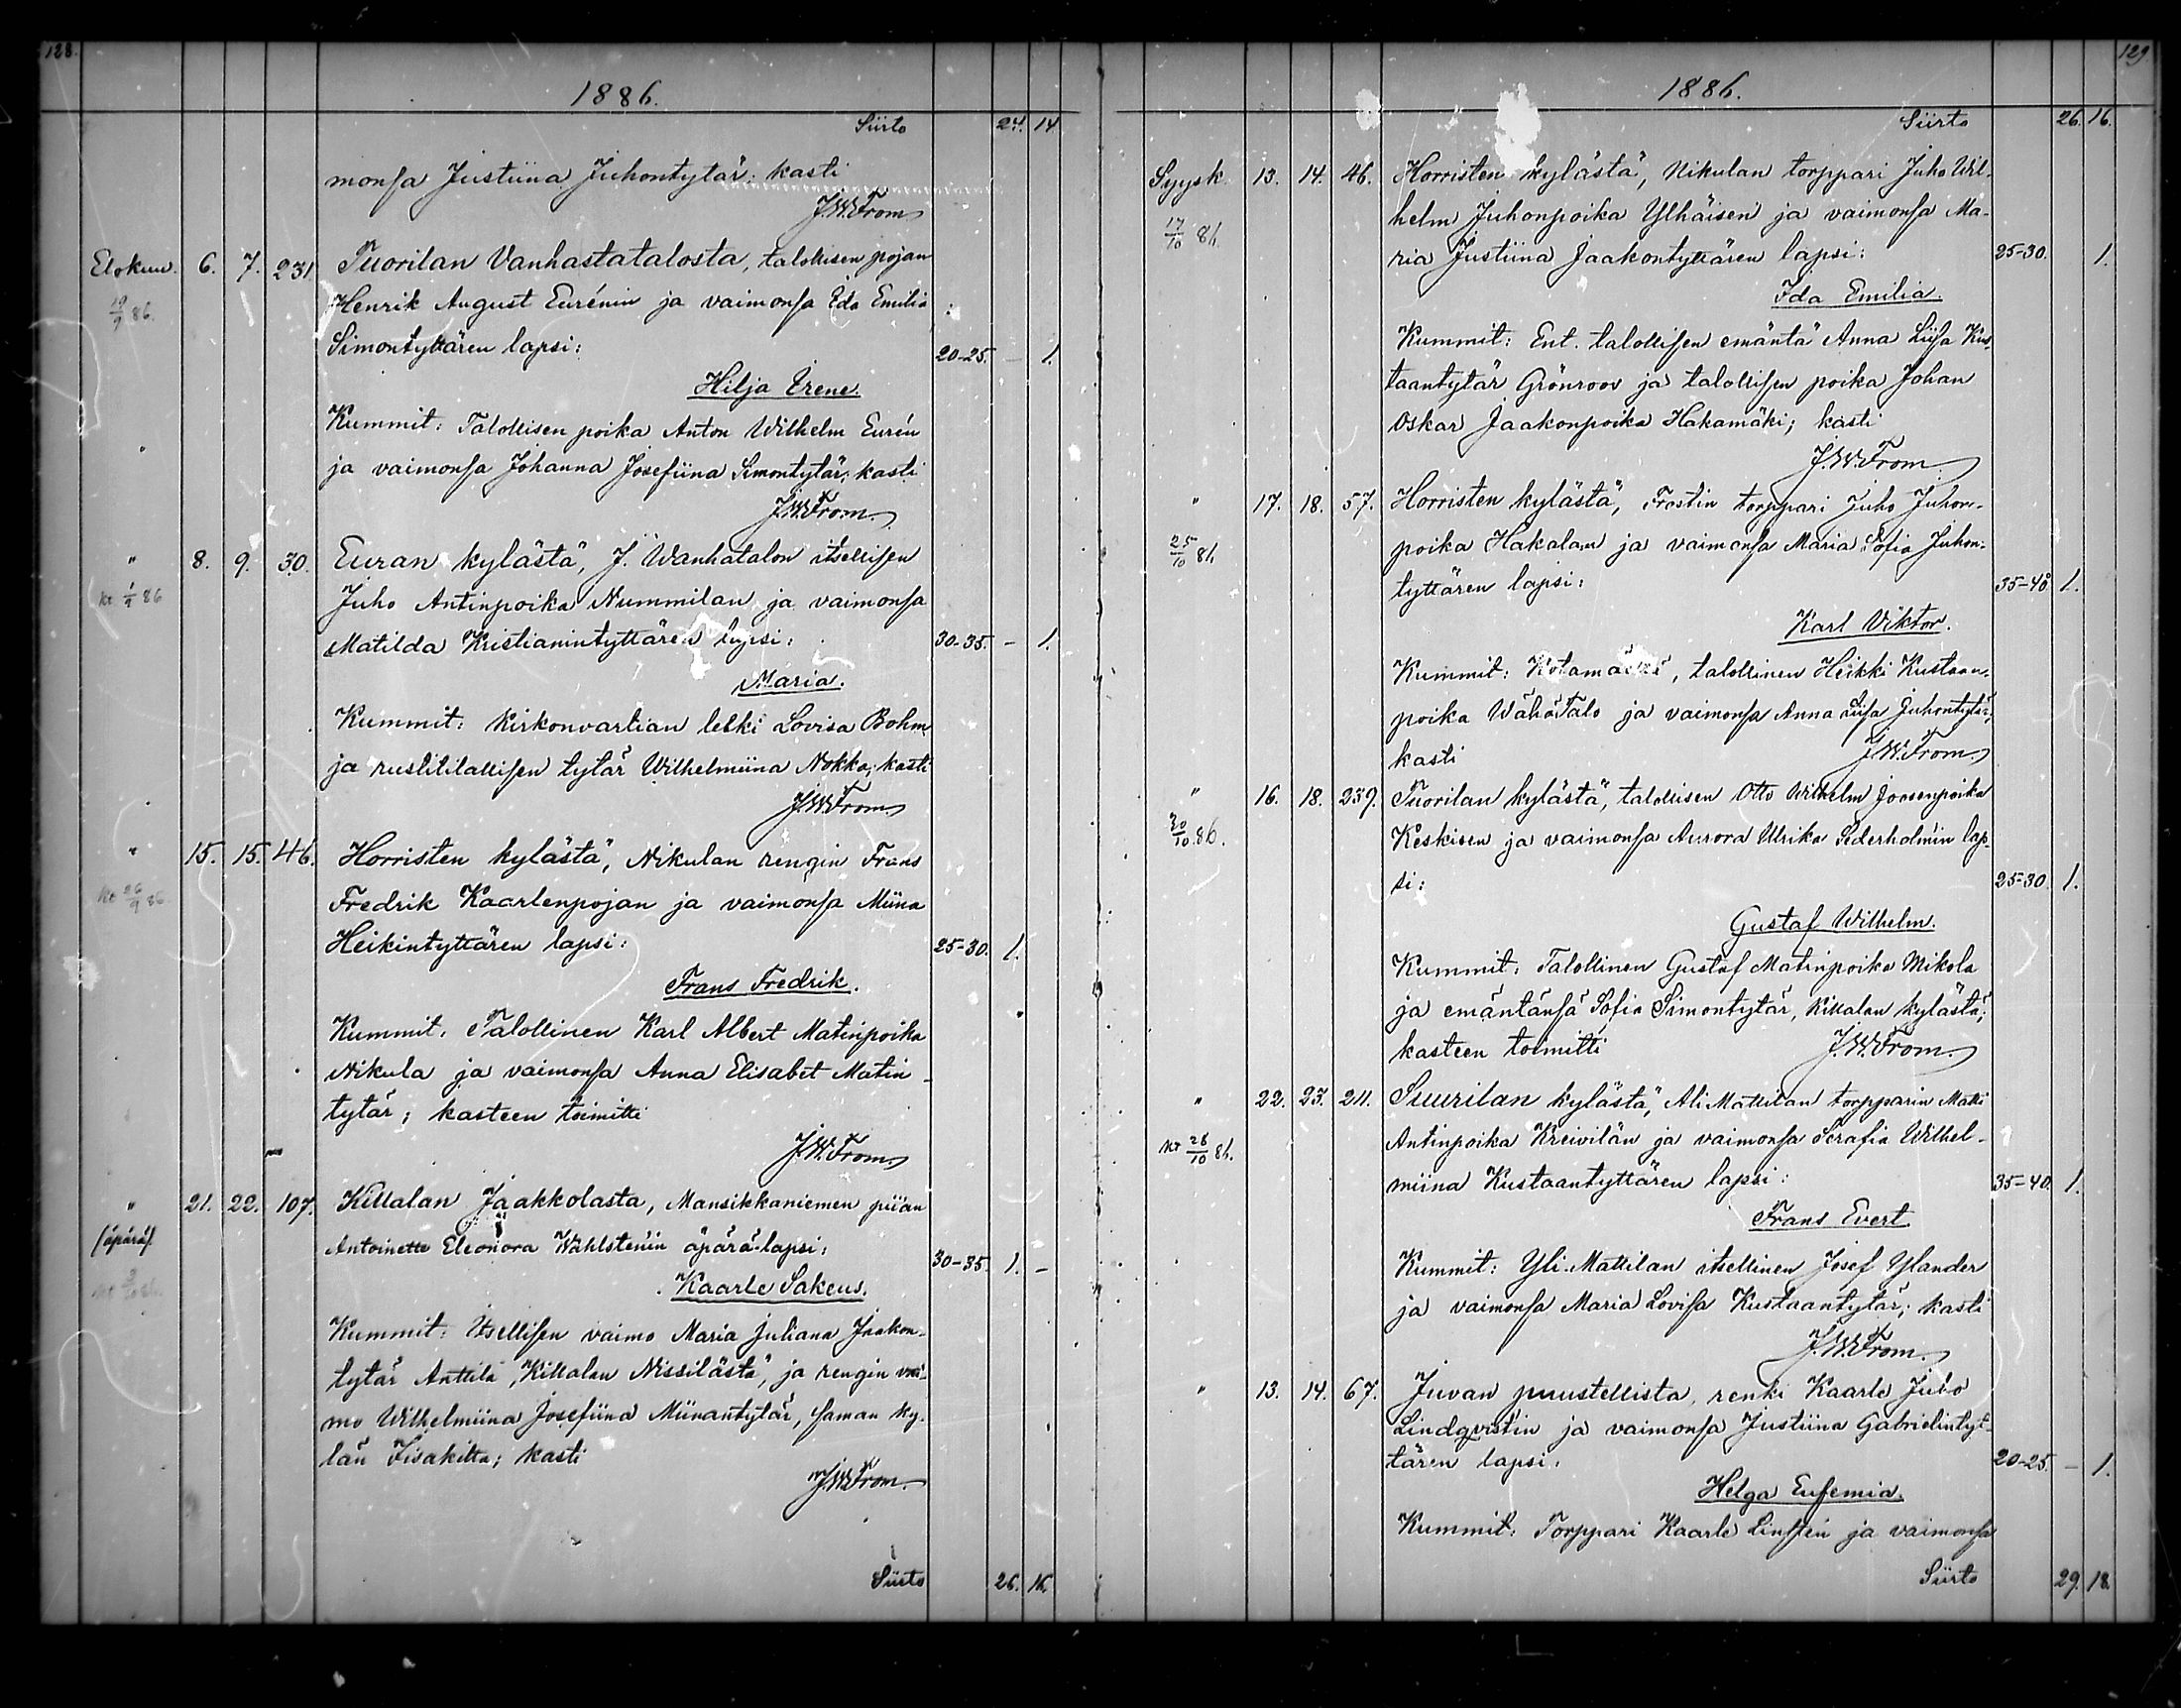 128.
1886.
Siirto 24. 14
monsa Justiina Juhontytär; kasti
J.W.From
Elokuu. 6. 7. 231. Tuorilan Vanhastatalosta, talollisen pojan
19/9 86. Henrik August Eurénin ja vaimonsa Ida Emilia
Simontyttären lapsi: 20-25. – 1.
Hilja Irene.
Kummit: Talollisen poika Anton Wilhelm Eurén
ja vaimonsa Johanna Josefiina Simontytär; kasti
J.W.From.
" 8. 9. 30. Euran kylästä, J. Wanhatalon itsellisen
kt 1/9 86 Juho Antinpoika Nummilan ja vaimonsa
Matilda Kristianintyttären lapsi: 30-35. – 1.
Maria.
Kummit: Kirkonvartian leski Lovisa Bohm
ja rustitilallisen tytär Wilhelmiina Nokka; kasti
J.W.From
" 15. 15. 46. Horristen kylästä, Nikulan rengin Frans
kt 26/9 86 Fredrik Kaarlenpojan ja vaimonsa Miina
Heikintyttären lapsi: 25-30. 1.
Frans Fredrik.
Kummit: Talollinen Karl Albert Matinpoika
Nikula ja vaimonsa Anna Elisabet Matin-
tytär; kasteen toimitti
J.W.From.
" 21. 22. 107. Killalan Jaakkolasta, Mansikkaniemen piian
/äpärä/. Antoinette Eleonora Wahlstenin äpärä-lapsi: 30-35. 1. –
kt 3/10 86. Kaarle Sakeus.
Kummit: Itsellisen vaimo Maria Juliana Jaakon-
tytär Anttila, Killalan Nissilästä, ja rengin vai-
mo Wilhelmiina Josefiina Miinantytär, saman ky-
län Iisakilta; kasti
J.W.From.
Siirto 26. 16.
129
1886.
Siirto 26. 16.
Syysk. 13. 14. 46. Horristen kylästä, Nikulan torppari Juho Wil-
17/10 86. helm Juhonpoika Ylhäisen ja vaimonsa Ma-
ria Justiina Jaakontyttären lapsi: 25-30. 1.
Ida Emilia.
Kummit: Ent. talollisen emäntä Anna Liisa Kus-
taantytär Grönroos ja talollisen poika Johan
Oskar Jaakonpoika Hakamäki; kasti
J.W.From.
" 17. 18. 57. Horristen kylästä, Frostin torppari Juho Juhon-
25/10 86 poika Hakalan ja vaimonsa Maria Sofia Juhon-
tyttären lapsi: 35-40 1.
Karl Viktor.
Kummit: talollinen Heikki Kustaan-
poika WähäTalo ja vaimonsa Anna Liisa Juhontytär;
kasti J.W.From.
" 16. 18. 239. Tuorilan kylästä, talollisen Otto Wilhelm Joosenpoika
30/10 86. Keskisen ja vaimonsa Aurora Ulrika Sederholmin lap-
si: 25-30. 1.
Gustaf Wilhelm.
Kummit: Talollinen Gustaf Matinpoika Mikola
ja emäntänsä Sofia Simontytär, Killalan kylästä;
kasteen toimitti J.W.From.
" 22. 23. 211. Suurilan kylästä, Ali Mattilan torpparin Matti
kt 28/10 86. Antinpoika Kreivilän ja vaimonsa Serafia Wilhel-
miina Kustaantyttären lapsi: 35-40. 1.
Frans Evert
Kummit: Yli-Mattilan itsellinen Josef Ylander
ja vaimonsa Maria Lovisa Kustaantytär; kasti
J.W.From.
" 13. 14. 67. Juvan puustellista, renki Kaarle Juho
Lindqvistin ja vaimonsa Justiina Gabrielintyt-
tären lapsi: 20-25. – 1.
Helga Eufemia.
Kummit: Torppari Kaarle Linstén ja vaimonsa
Siirto 29. 18.